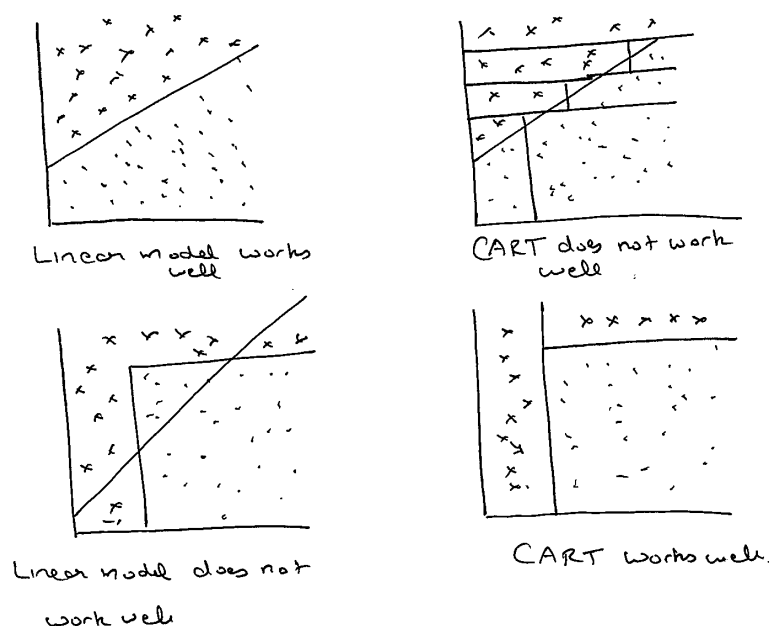 Linear model works
well
CART does not work
well
Linear model does not
work well
CART works well.